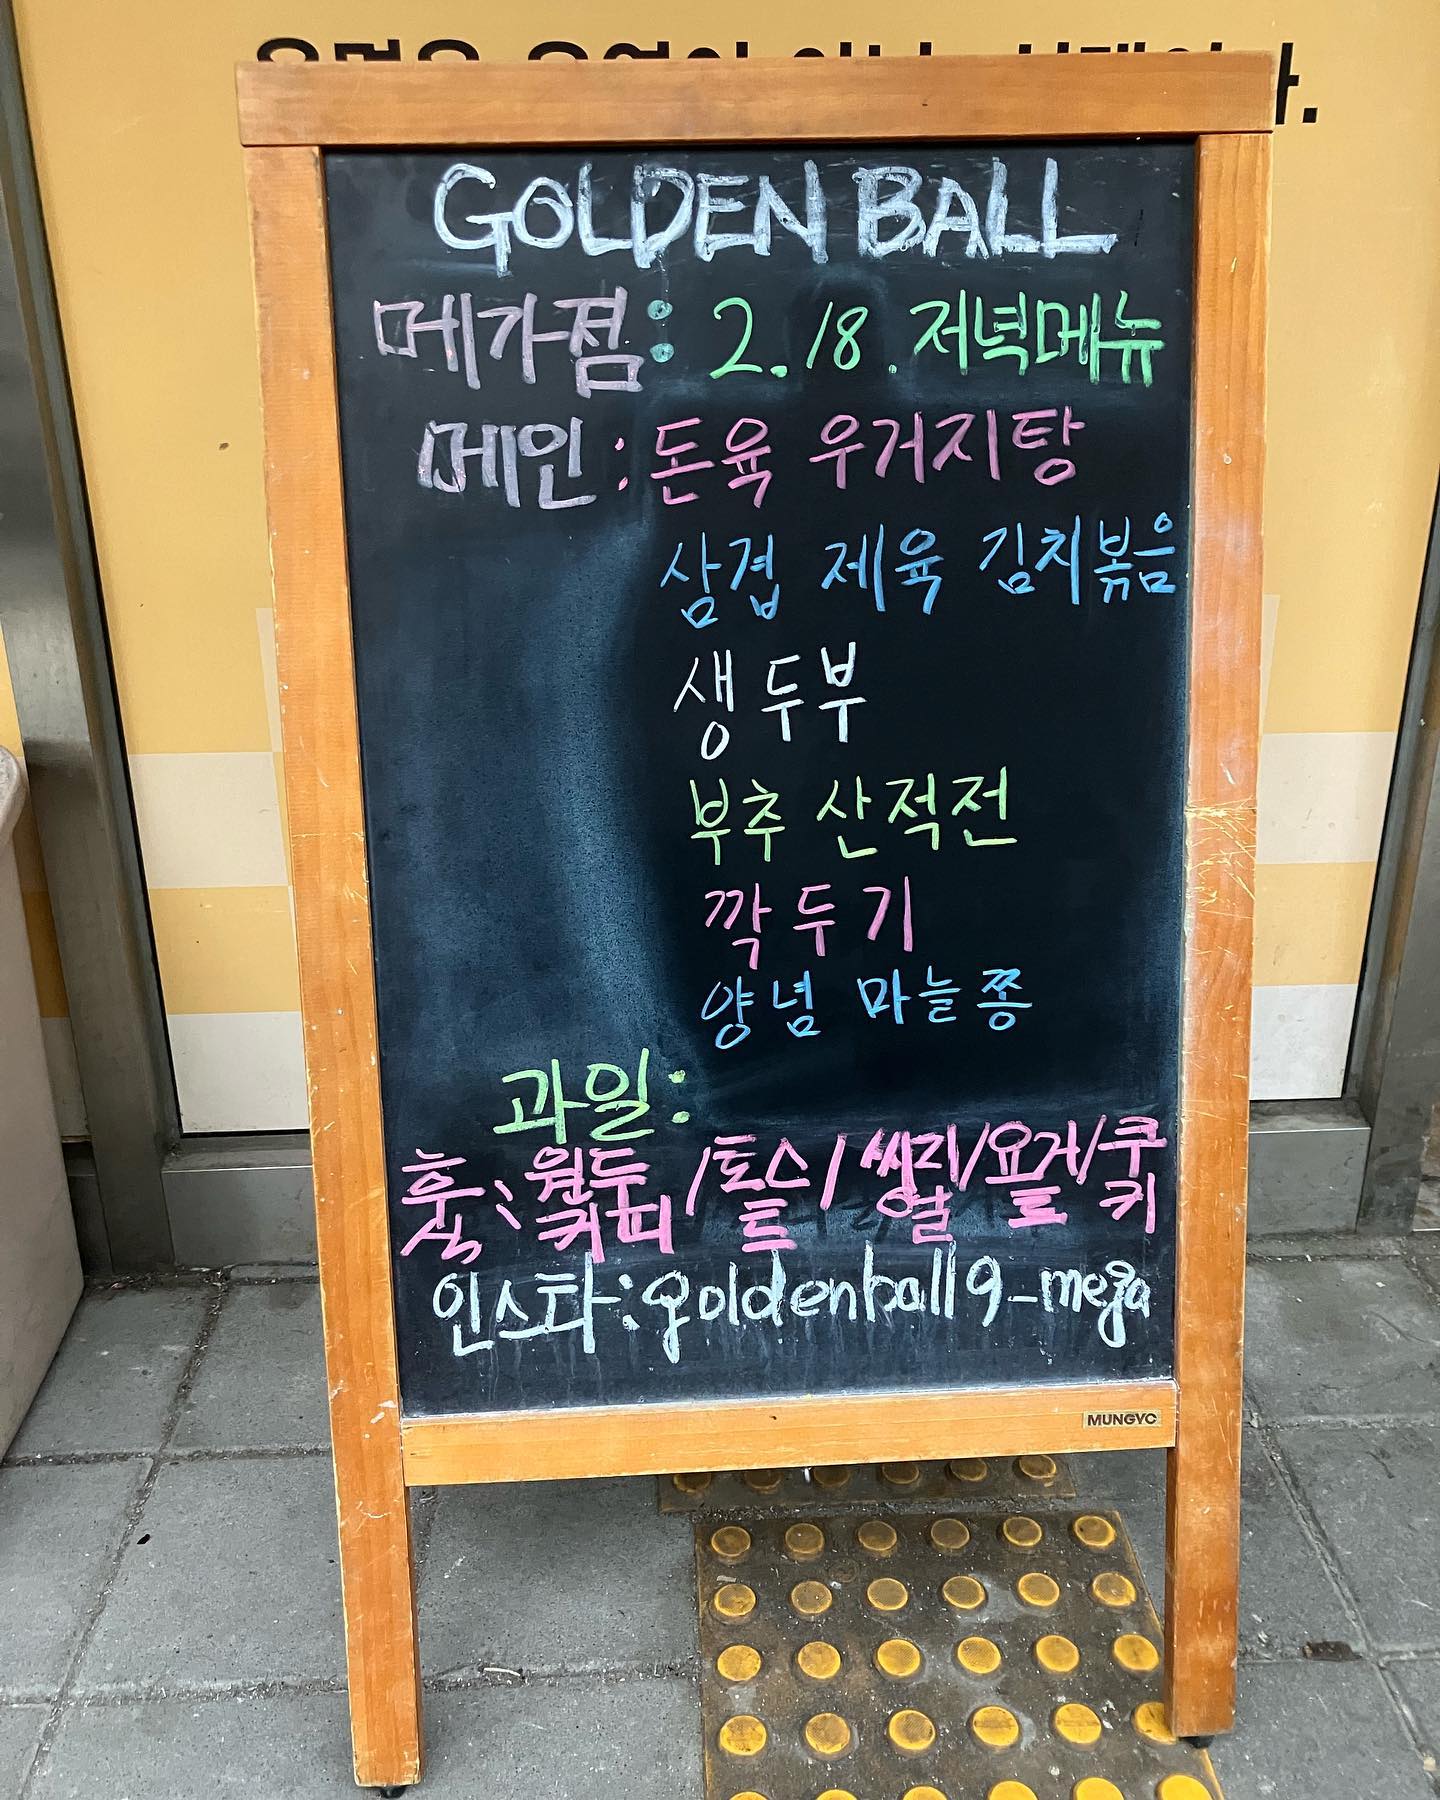 GOLDEN BALL
메가점: 2.18. 저녁메뉴
메인: 돈육 우거지탕
삼겹 제육 김치볶음
생두부
부추 산적전
깍두기
양념 마늘쫑
과일:
후식: 원두커피/토스트/생과일/요거트/쿠키
인스타: goldenball9_mega
MUNGYO